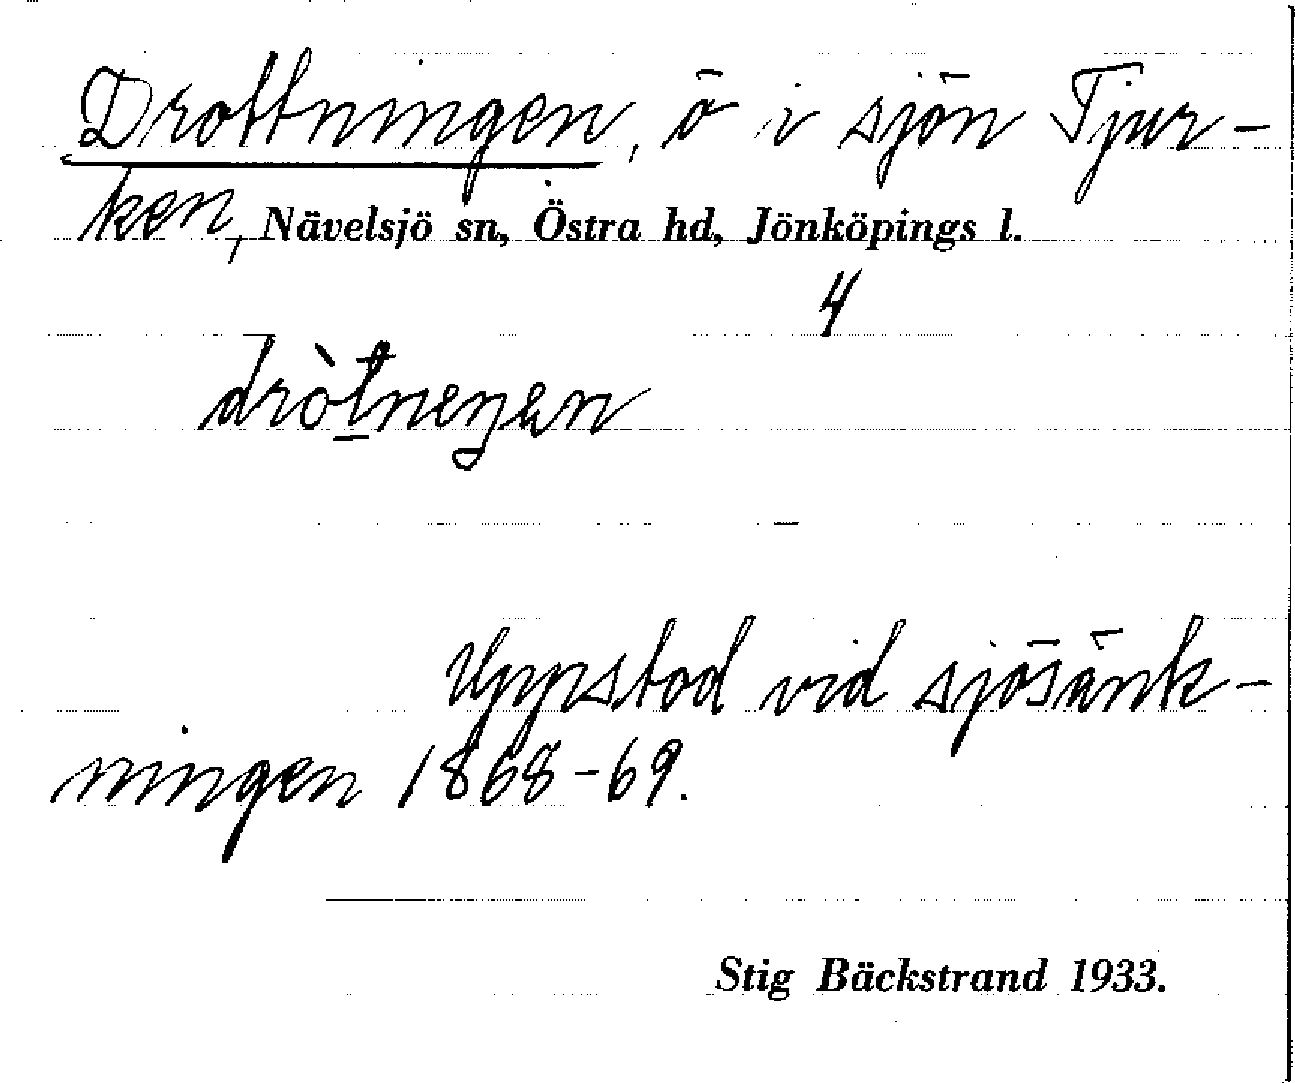 Drottningen, ö i sjön Tjur-
ken, Nävelsjö sn, Östra hd, Jönköpings l.
4
dròtneŋən
Uppstod vid sjösänk-
ningen 1868-69.
Stig Bäckstrand 1933.